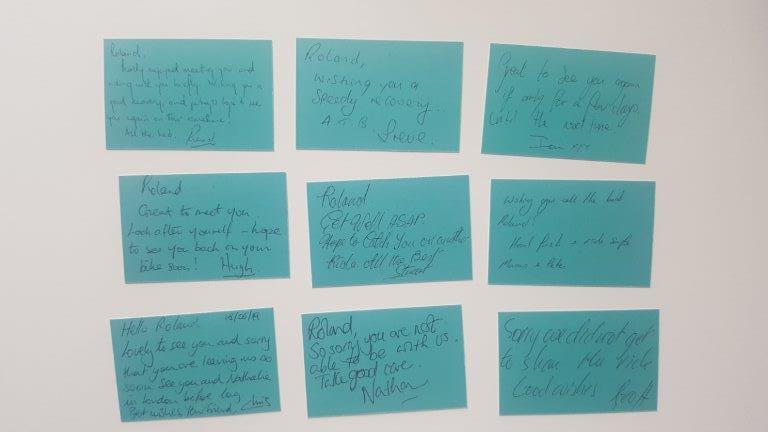 Roland,
Really enjoyed meeting you and
riding with you briefly. Wishing you a
good recovery and perhaps hope to see
you again on tour sometime!
All the best.
Roland,
Wishing you a
Speedy recovery...
A.T.B. Steve.
Great to see you again
if only for a few days.
Until the next time.
Ian xx
Roland
Great to meet you
Look after yourself - hope
to see you back on your
bike soon! Hugh.
Roland
Get Well ASAP
Hope to Catch You on another
Ride. All the Best
Stuart
Wishing you all the best
Roland!
Heal fast & ride safe
& Pete.
Hello Roland 18/06/19
Lovely to see you and sorry
that you are leaving us so
soon. See you and Nathalie
in London before long
Best wishes Your friend, Chris
Roland,
So sorry you are not
able to be with us.
Take good care.
Nathan
Sorry we did not get
to share the ride
Good wishes Geoff